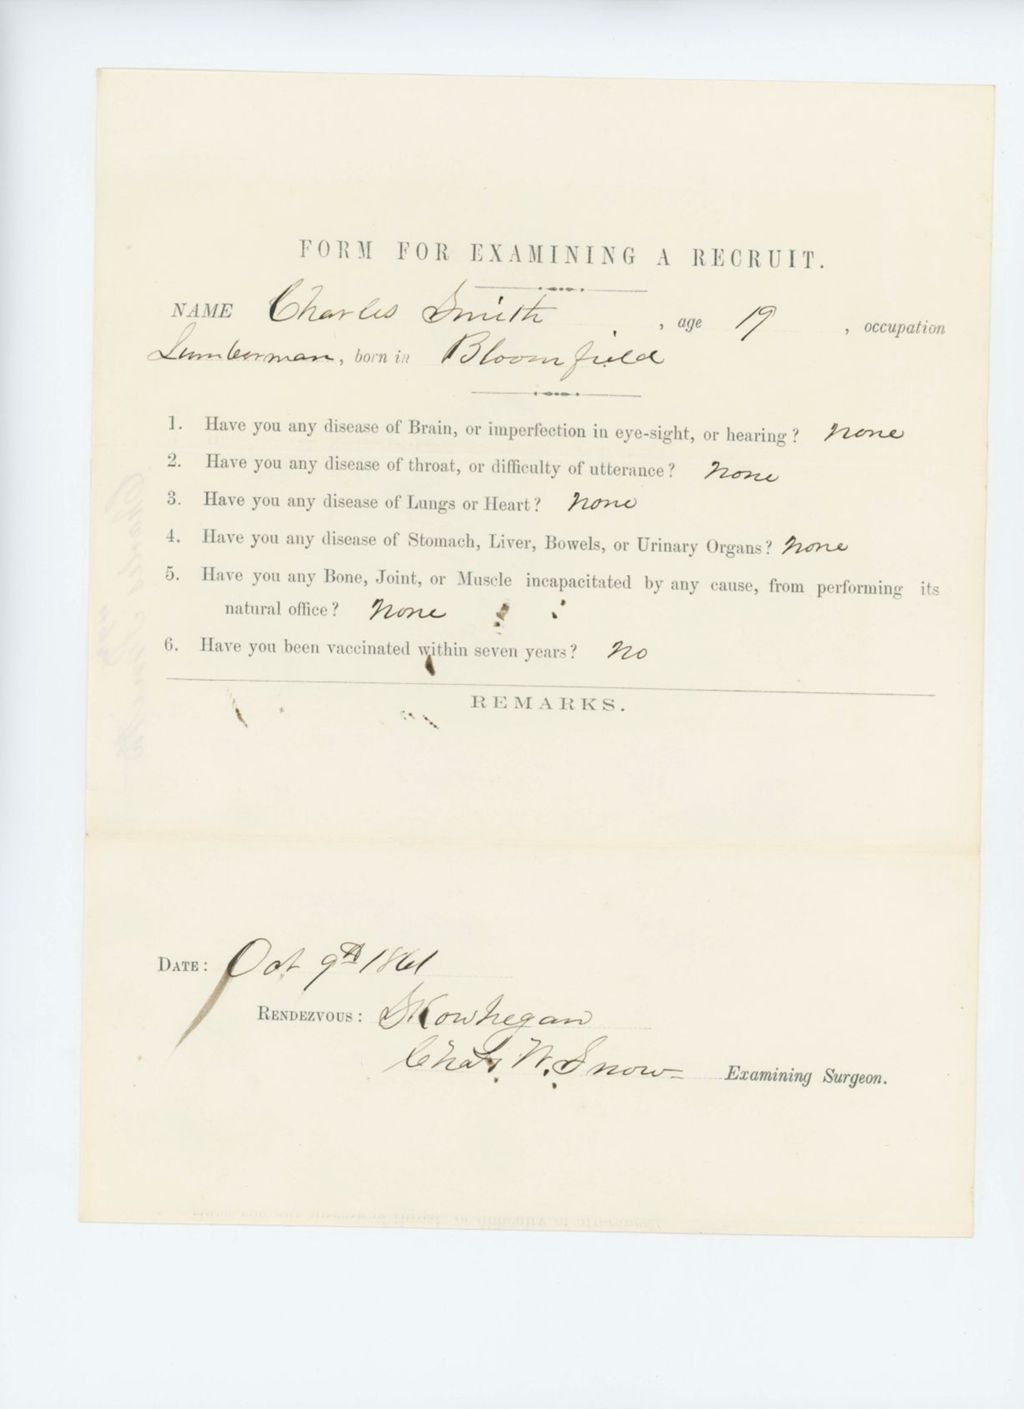 FORM FOR EXAMINING A RECRUIT.
NAME Charles Smith, age 19, occupation
Lumberman, born in Bloomfield
1. Have you any disease of Brain, or imperfection in eye-sight, or hearing? None
2. Have you any disease of throat, or difficulty of utterance? None
3. Have you any disease of Lungs or Heart? None
4. Have you any disease of Stomach, Liver, Bowels, or Urinary Organs? None
5. Have you any Bone, Joint, or Muscle incapacitated by any cause, from performing its
natural office? None
6. Have you been vaccinated within seven years? No
REMARKS.
DATE: Oct 9th 1861
RENDEZVOUS: Skowhegan
Chas. W. Snow Examining Surgeon.